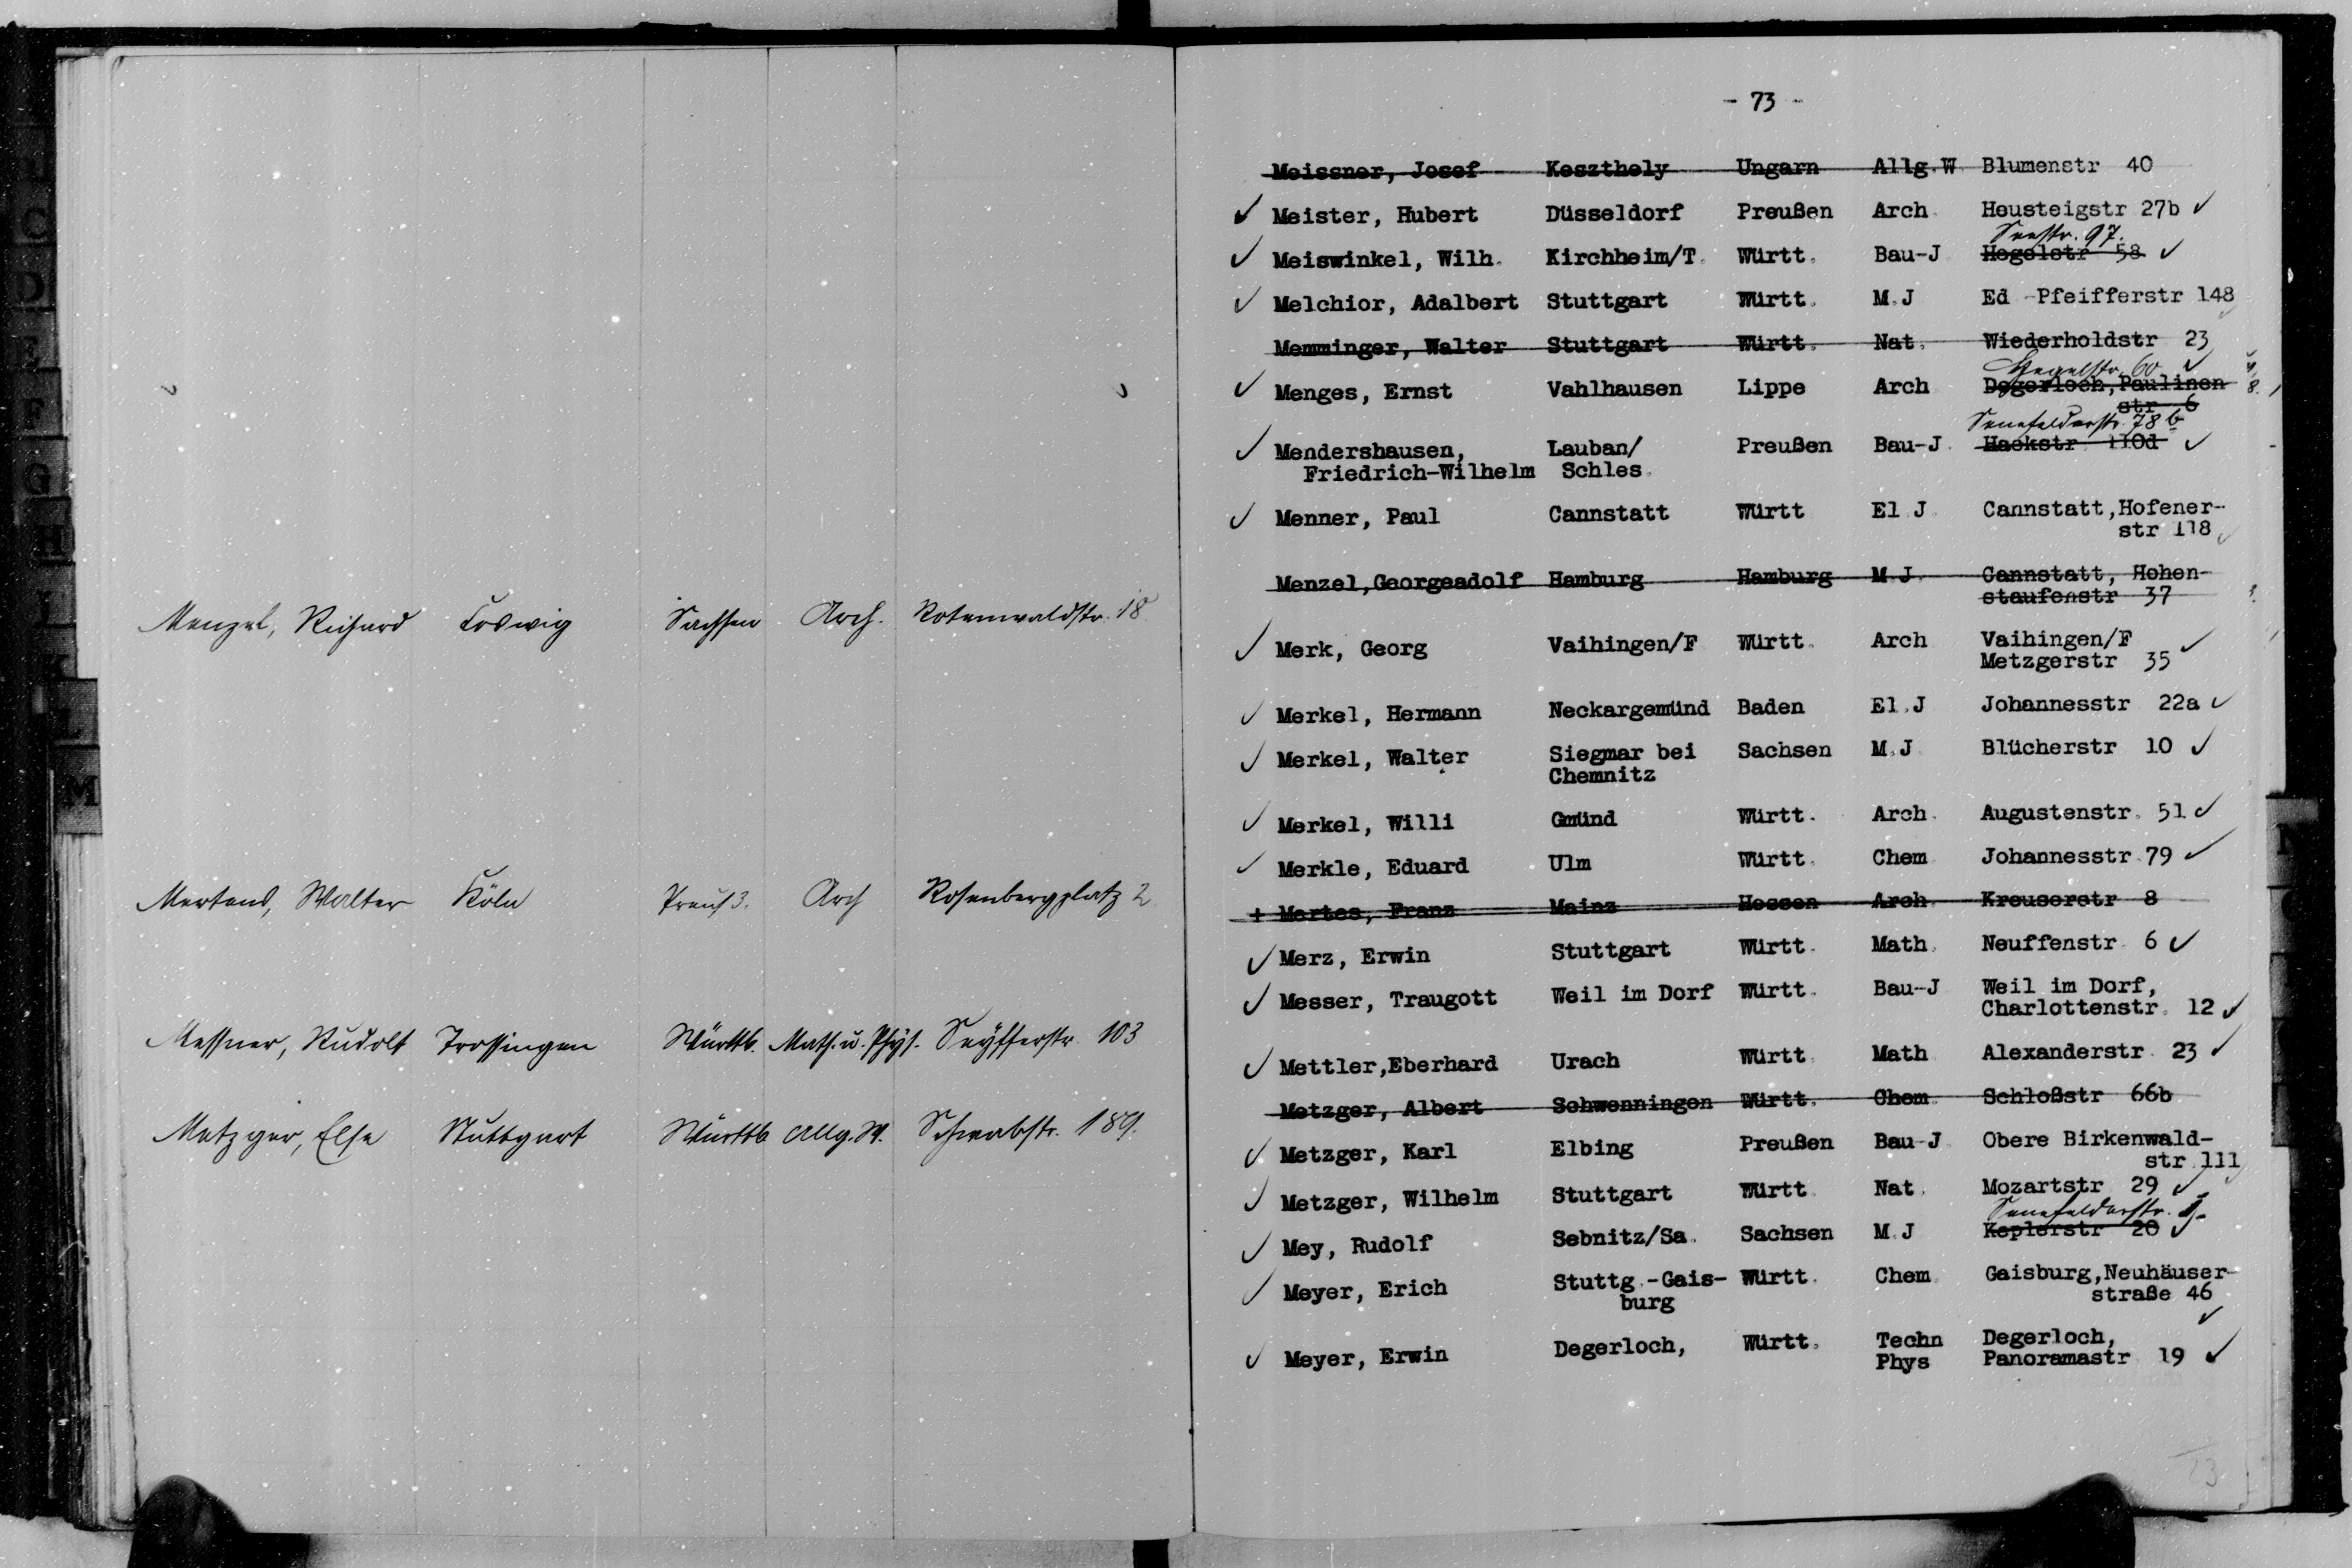 Menzel, Richard Coswig Sachsen Arch. Rotenwaldstr. 18
Mertens, Walter Köln Preuß. Arch Rosenbergplatz 2
Messner, Rudolf Trossingen Württb. Math. u. Phys. Seyfferstr. 103
Metzger, Else Stuttgart Württb Allg. W. Schwabstr. 189.
- 73 -
Meissner, Josef Keszthely Ungarn Allg.W Blumenstr 40
✓ Meister, Hubert Düsseldorf Preußen Arch Heusteigstr 27b ✓
Seestr. 97.
✓ Meiswinkel, Wilh. Kirchheim/T. Württ. Bau-J Hegelstr 58 ✓
✓ Melchior, Adalbert Stuttgart Württ. M.J Ed -Pfeifferstr 148 ✓
Memminger, Walter Stuttgart Württ. Nat. Wiederholdstr 23
Hegelstr. 60 ✓
✓ Menges, Ernst Vahlhausen Lippe Arch Degerloch,Paulinen
str 6
Senefelderstr. 78b
✓ Mendershausen, Lauban/ Preußen Bau-J Hackstr 110d ✓
Friedrich-Wilhelm Schles.
✓ Menner, Paul Cannstatt Württ El J Cannstatt,Hofener-
str 118 ✓
Menzel,Georgeadolf Hamburg Hamburg M J Cannstatt, Hohen-
staufenstr 37
✓ Merk, Georg Vaihingen/F Württ. Arch Vaihingen/F ✓
Metzgerstr 35
✓ Merkel, Hermann Neckargemünd Baden El.J Johannesstr 22a ✓
✓ Merkel, Walter Siegmar bei Sachsen M.J Blücherstr 10 ✓
Chemnitz
✓ Merkel, Willi Gmünd Württ. Arch. Augustenstr. 51 ✓
✓ Merkle, Eduard Ulm Württ. Chem Johannesstr 79 ✓
+ Mertes, Franz Mainz Hessen Arch Kreuserstr 8
✓ Merz, Erwin Stuttgart Württ. Math. Neuffenstr 6 ✓
✓ Messer, Traugott Weil im Dorf Württ. Bau-J Weil im Dorf,
Charlottenstr. 12 ✓
✓ Mettler,Eberhard Urach Württ Math Alexanderstr 23 ✓
Metzger, Albert Schwenningen Württ. Chem Schloßstr 66b
✓ Metzger, Karl Elbing Preußen Bau-J Obere Birkenwald-
str 111
✓ Metzger, Wilhelm Stuttgart Württ Nat. Mozartstr 29 ✓
Senefelderstr.
✓ Mey, Rudolf Sebnitz/Sa. Sachsen M.J Keplerstr 20 ✓
✓ Meyer, Erich Stuttg.-Gais- Württ. Chem Gaisburg,Neuhäuser-
burg straße 46 ✓
✓ Meyer, Erwin Degerloch, Württ. Techn Degerloch,
Phys Panoramastr 19 ✓
C
D
E
F
G
H
I
K
L
M